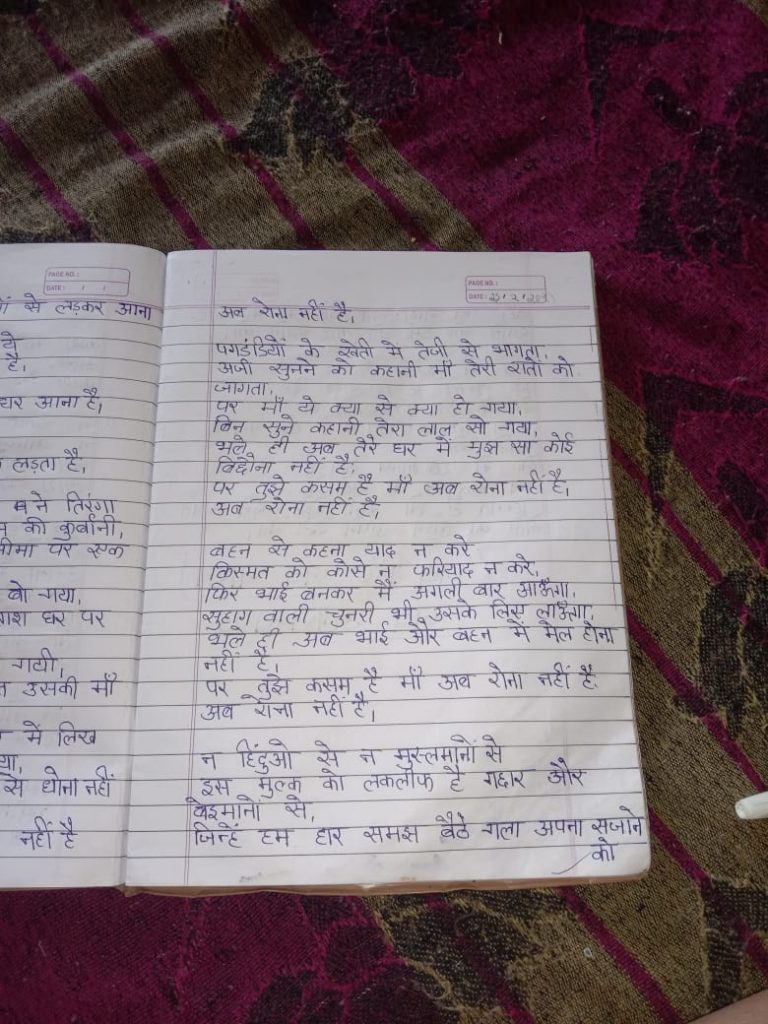 PAGE NO. :
DATE : / /
से लड़कर आना
है,
घर आना है,
लड़ता है,
ने तिरंगा
की कुर्बानी,
सीमा पर एक
बो गया,
लाश घर पर
गयी,
उसकी माँ
में लिख
से धोना नहीं
नहीं है
PAGE NO. :
DATE :
अब रोना नहीं है,
पगडंडियों के खेतो मे तेजी से भागता,
अजी सुनने को कहानी माँ तेरी रातो को
जागता,
पर माँ ये क्या से क्या हो गया,
बिन सुने कहानी तेरा लाल सो गया,
भले ही अब तेरे घर में मुझ सा कोई
बिछोना नहीं है,
पर तुझे कसम है माँ अब रोना नहीं है,
अब रोना नहीं है,
बहन से कहना याद न करे
किस्मत को कोसे न फरियाद न करे,
फिर भाई बनकर मैं अगली बार आऊँगा,
सुहाग वाली चुनरी भी उसके लिए लाऊँगा,
भले ही अब भाई और बहन में मेल होना
नहीं है,
पर तुझे कसम है माँ अब रोना नहीं है
अब रोना नहीं है,
न हिंदुओ से न मुस्लमानों से
इस मुल्क को तकलीफ है गद्दार और
बेइमानों से,
जिन्हें हम हार समझ बैठे गला अपना सजाने
को